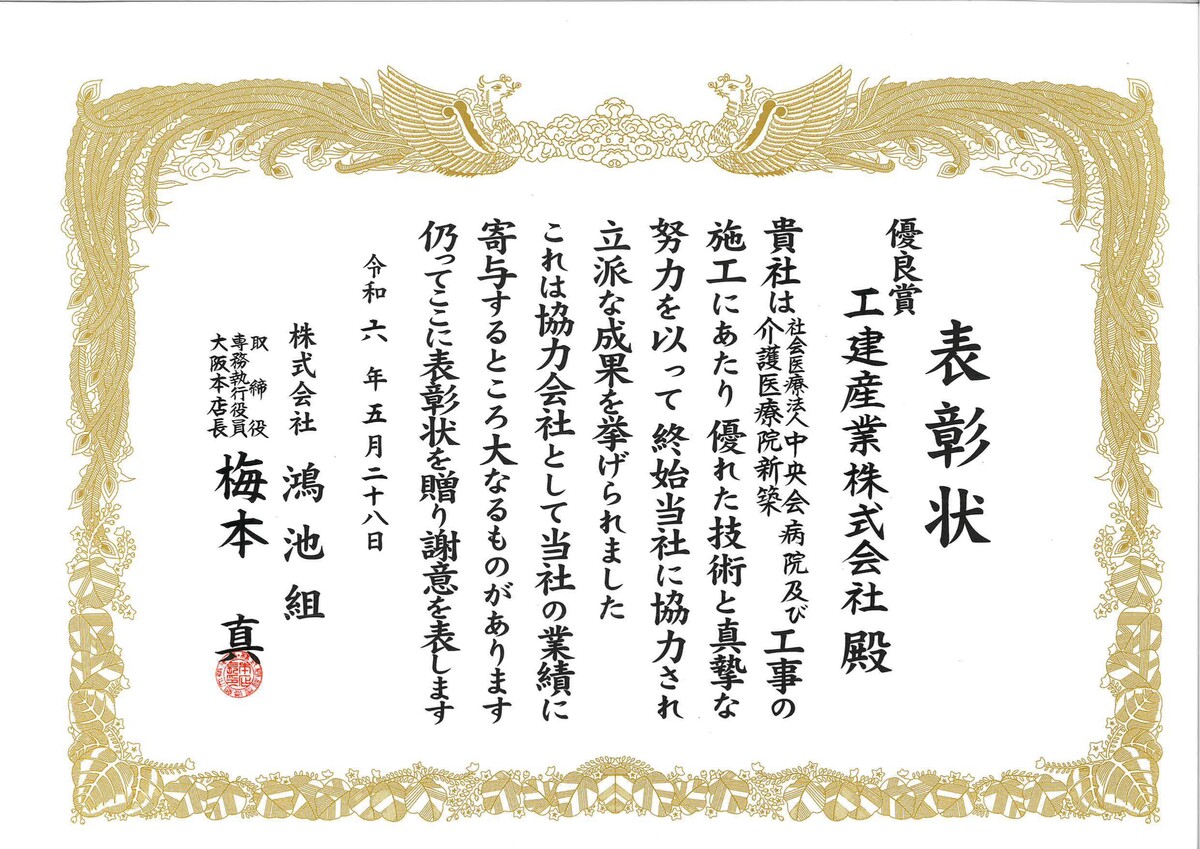 表彰状
優良賞
工建産業株式会社 殿
貴社は社会医療法人中央会病院及び介護医療院新築工事の
施工にあたり優れた技術と真摯な
努力を以って終始当社に協力され
立派な成果を挙げられました
これは協力会社として当社の業績に
寄与するところ大なるものがあります
仍ってここに表彰状を贈り謝意を表します
令和六年五月二十八日
株式会社 鴻池組
取締役
専務執行役員
大阪本店長
梅本 真